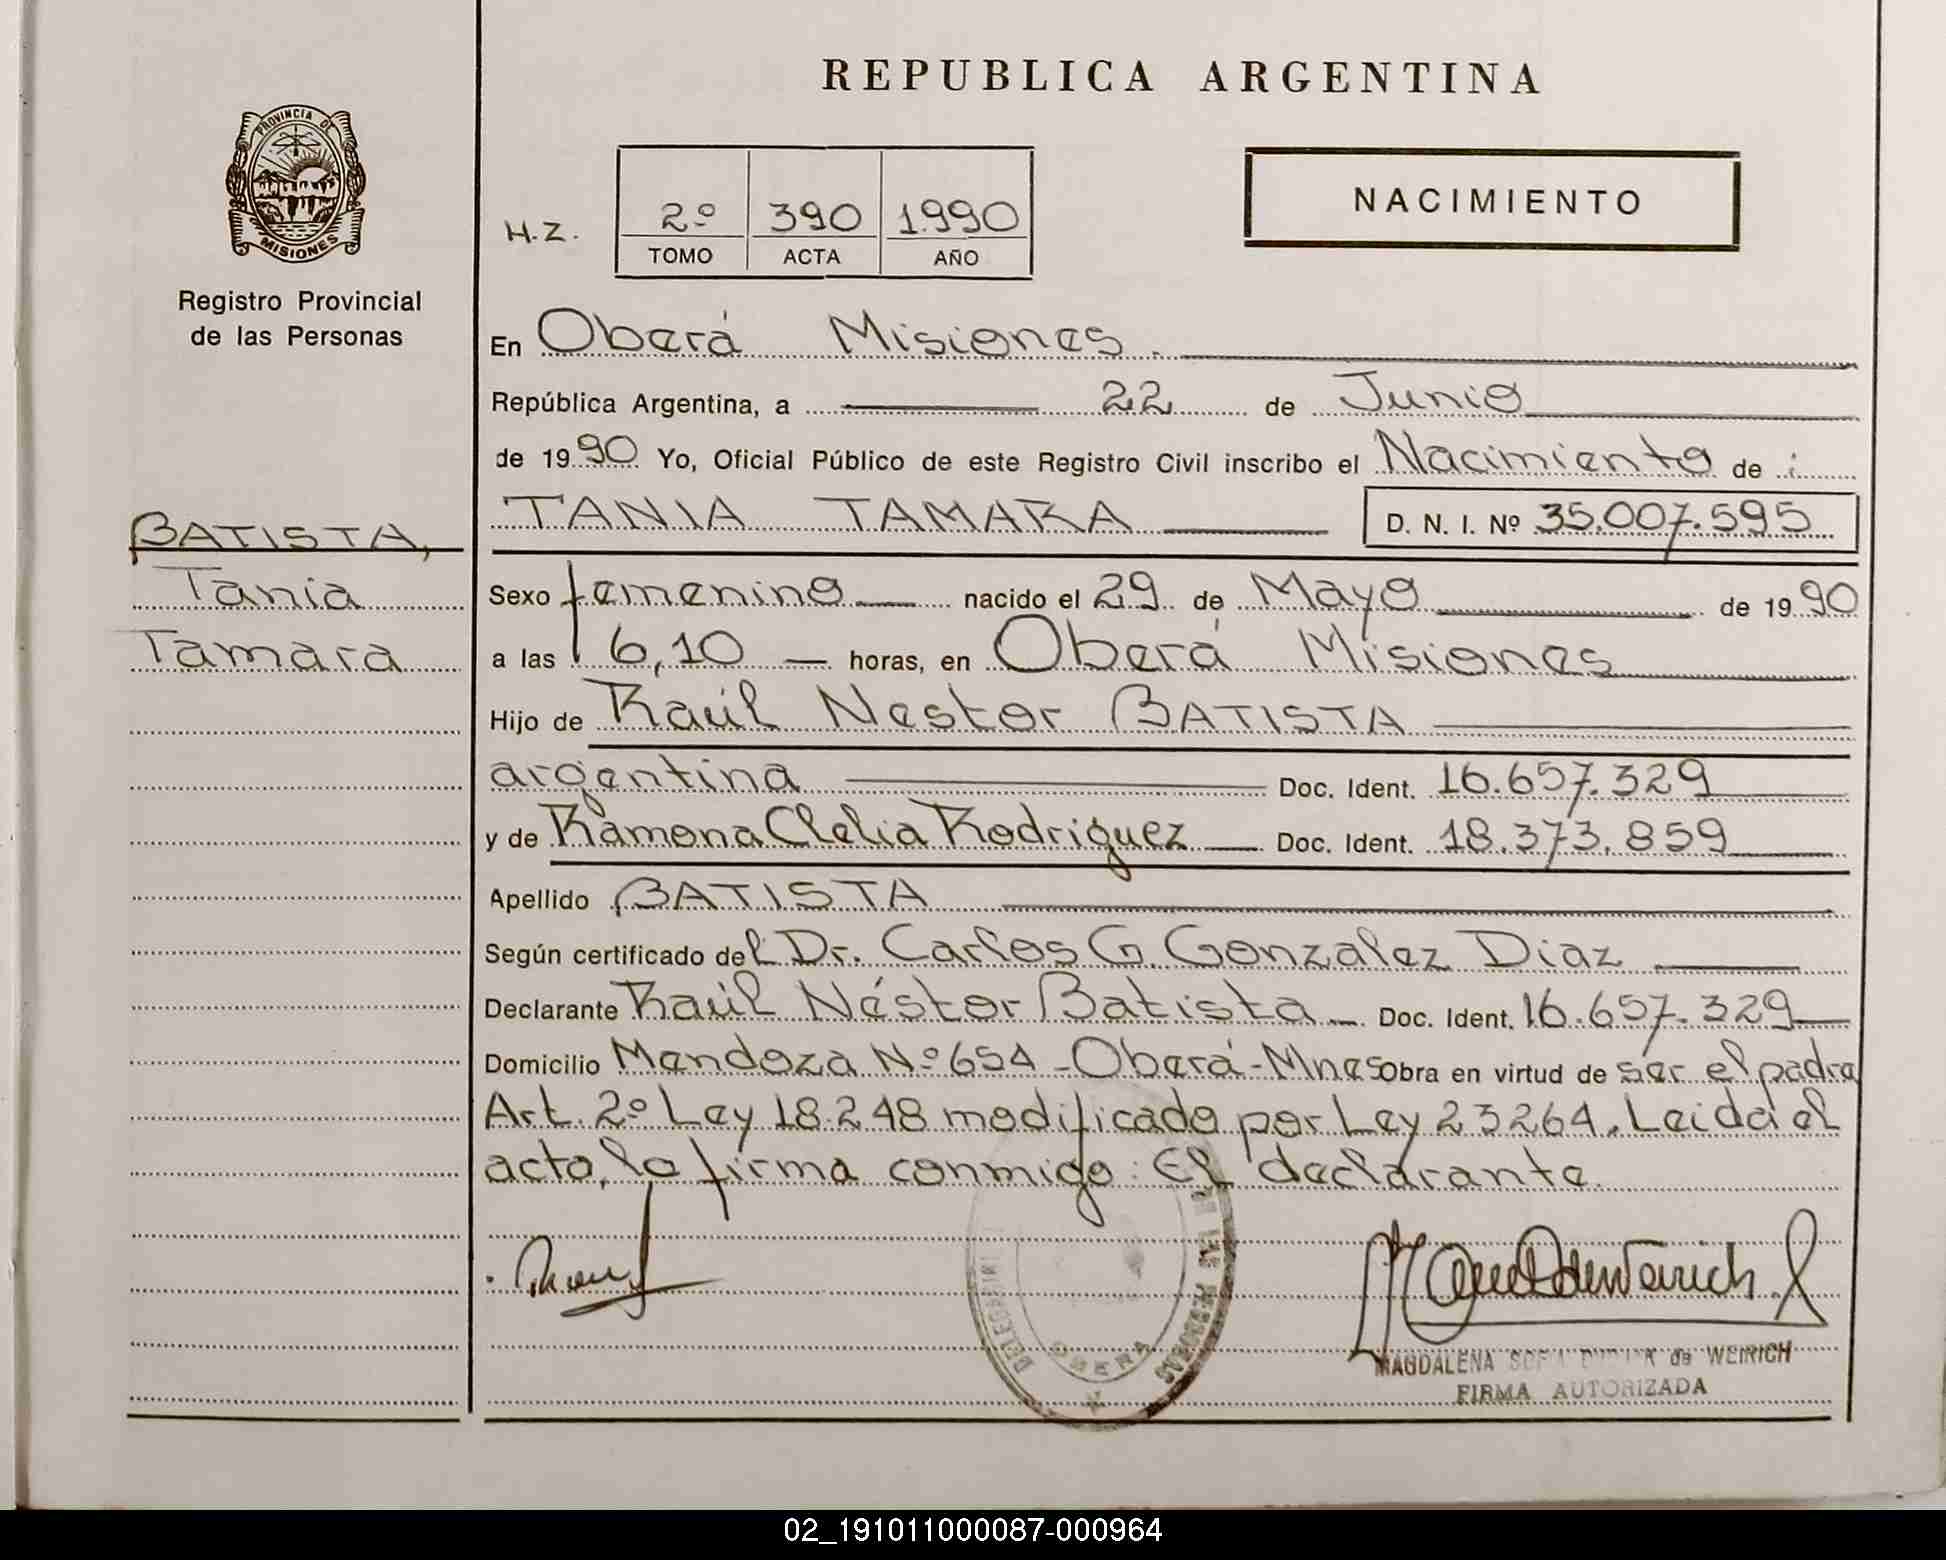 REPUBLICA ARGENTINA
PROVINCIA DE
MISIONES
Registro Provincial
de las Personas
H.Z.
2º 390 1.990
TOMO ACTA AÑO
NACIMIENTO
En Oberá Misiones.
República Argentina, a 22 de Junio
de 1990 Yo, Oficial Público de este Registro Civil inscribo el Nacimiento de :
TANIA TAMARA D. N. I. Nº 35.007.595
BATISTA,
Tania
Tamara
Sexo femenino nacido el 29 de Mayo de 1990
a las 6,10 horas, en Oberá Misiones
Hijo de Raúl Nestor BATISTA
argentina Doc. Ident. 16.657.329
y de Ramona Clelia Rodriguez Doc. Ident. 18.373.859
Apellido BATISTA
Según certificado del Dr. Carlos G. Gonzalez Diaz
Declarante Raúl Néstor Batista Doc. Ident. 16.657.329
Domicilio Mendoza Nº 654 - Oberá - Mnes obra en virtud de ser el padre
Art. 2º Ley 18.248 modificado por Ley 23264. Leida el
acto, lo firma conmigo: El declarante.
DELEGACION DE LAS PERSONAS
OBERA
MAGDALENA de WEIRICH
FIRMA AUTORIZADA
02_191011000087-000964